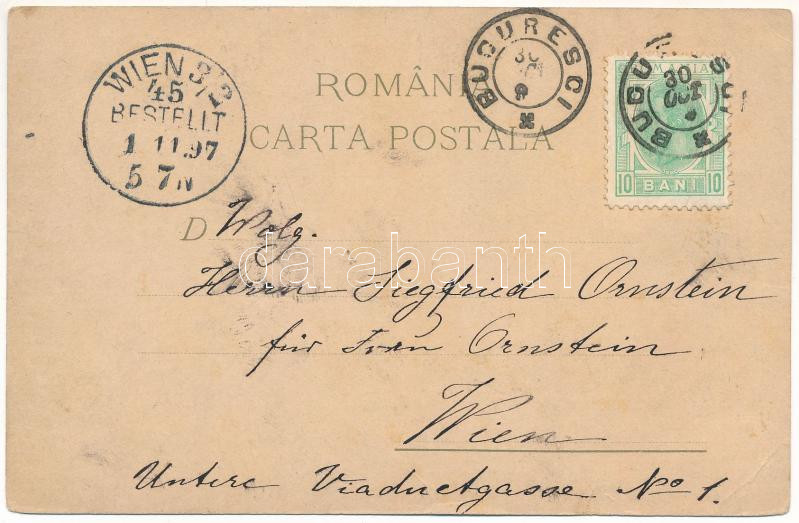 WIEN 3/2
45
BESTELLT
1 11 97
5 7N
BUCURESCI
30
BUCU SCI
30
OCT
10 BANI 10
ROMÂNIA
CARTA POSTALA
D Wolg.
darabanth
Herrn Siegfried Ornstein
für Frau Ornstein
Wien
Untere Viaductgasse No 1.